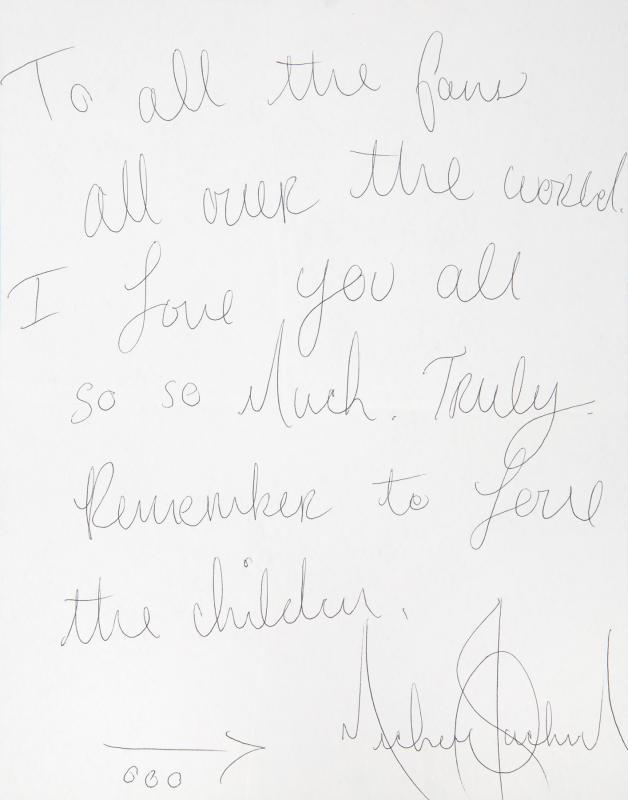 To all the fans
all over the world.
I Love you all
so so Much. Truly.
Remember to Love
the children.
Michael Jackson
000